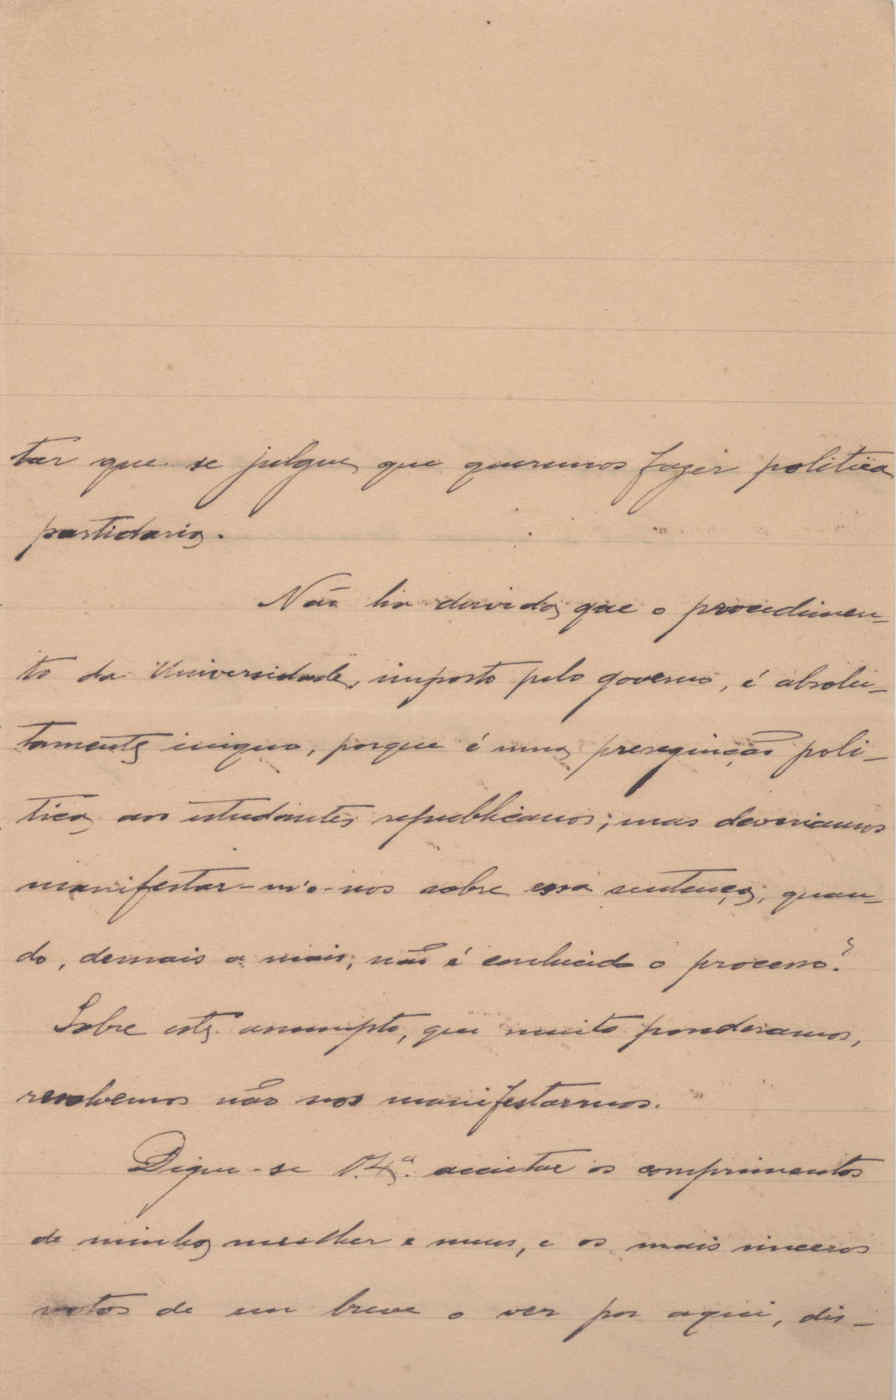 tar que se julgue que queremos fazer politica
partidaria.
Não ha duvida que o procedimen-
to da Universidade, imposto pelo governo, é absolu-
tamente iniquo, porque é uma poli-
tica aos estudantes republicanos; mas deveriamos
manifestar- nos sobre essa sentença, quan-
do, demais a mais, não é conhecido o processo?
Sobre este assumpto, que muito ponderamos,
resolvemos não nos manifestarmos.
Digne-se V. Ex.ª acceitar os comprimentos
de minha mulher e meus, e os mais sinceros
votos de em breve o ver por aqui, dis-